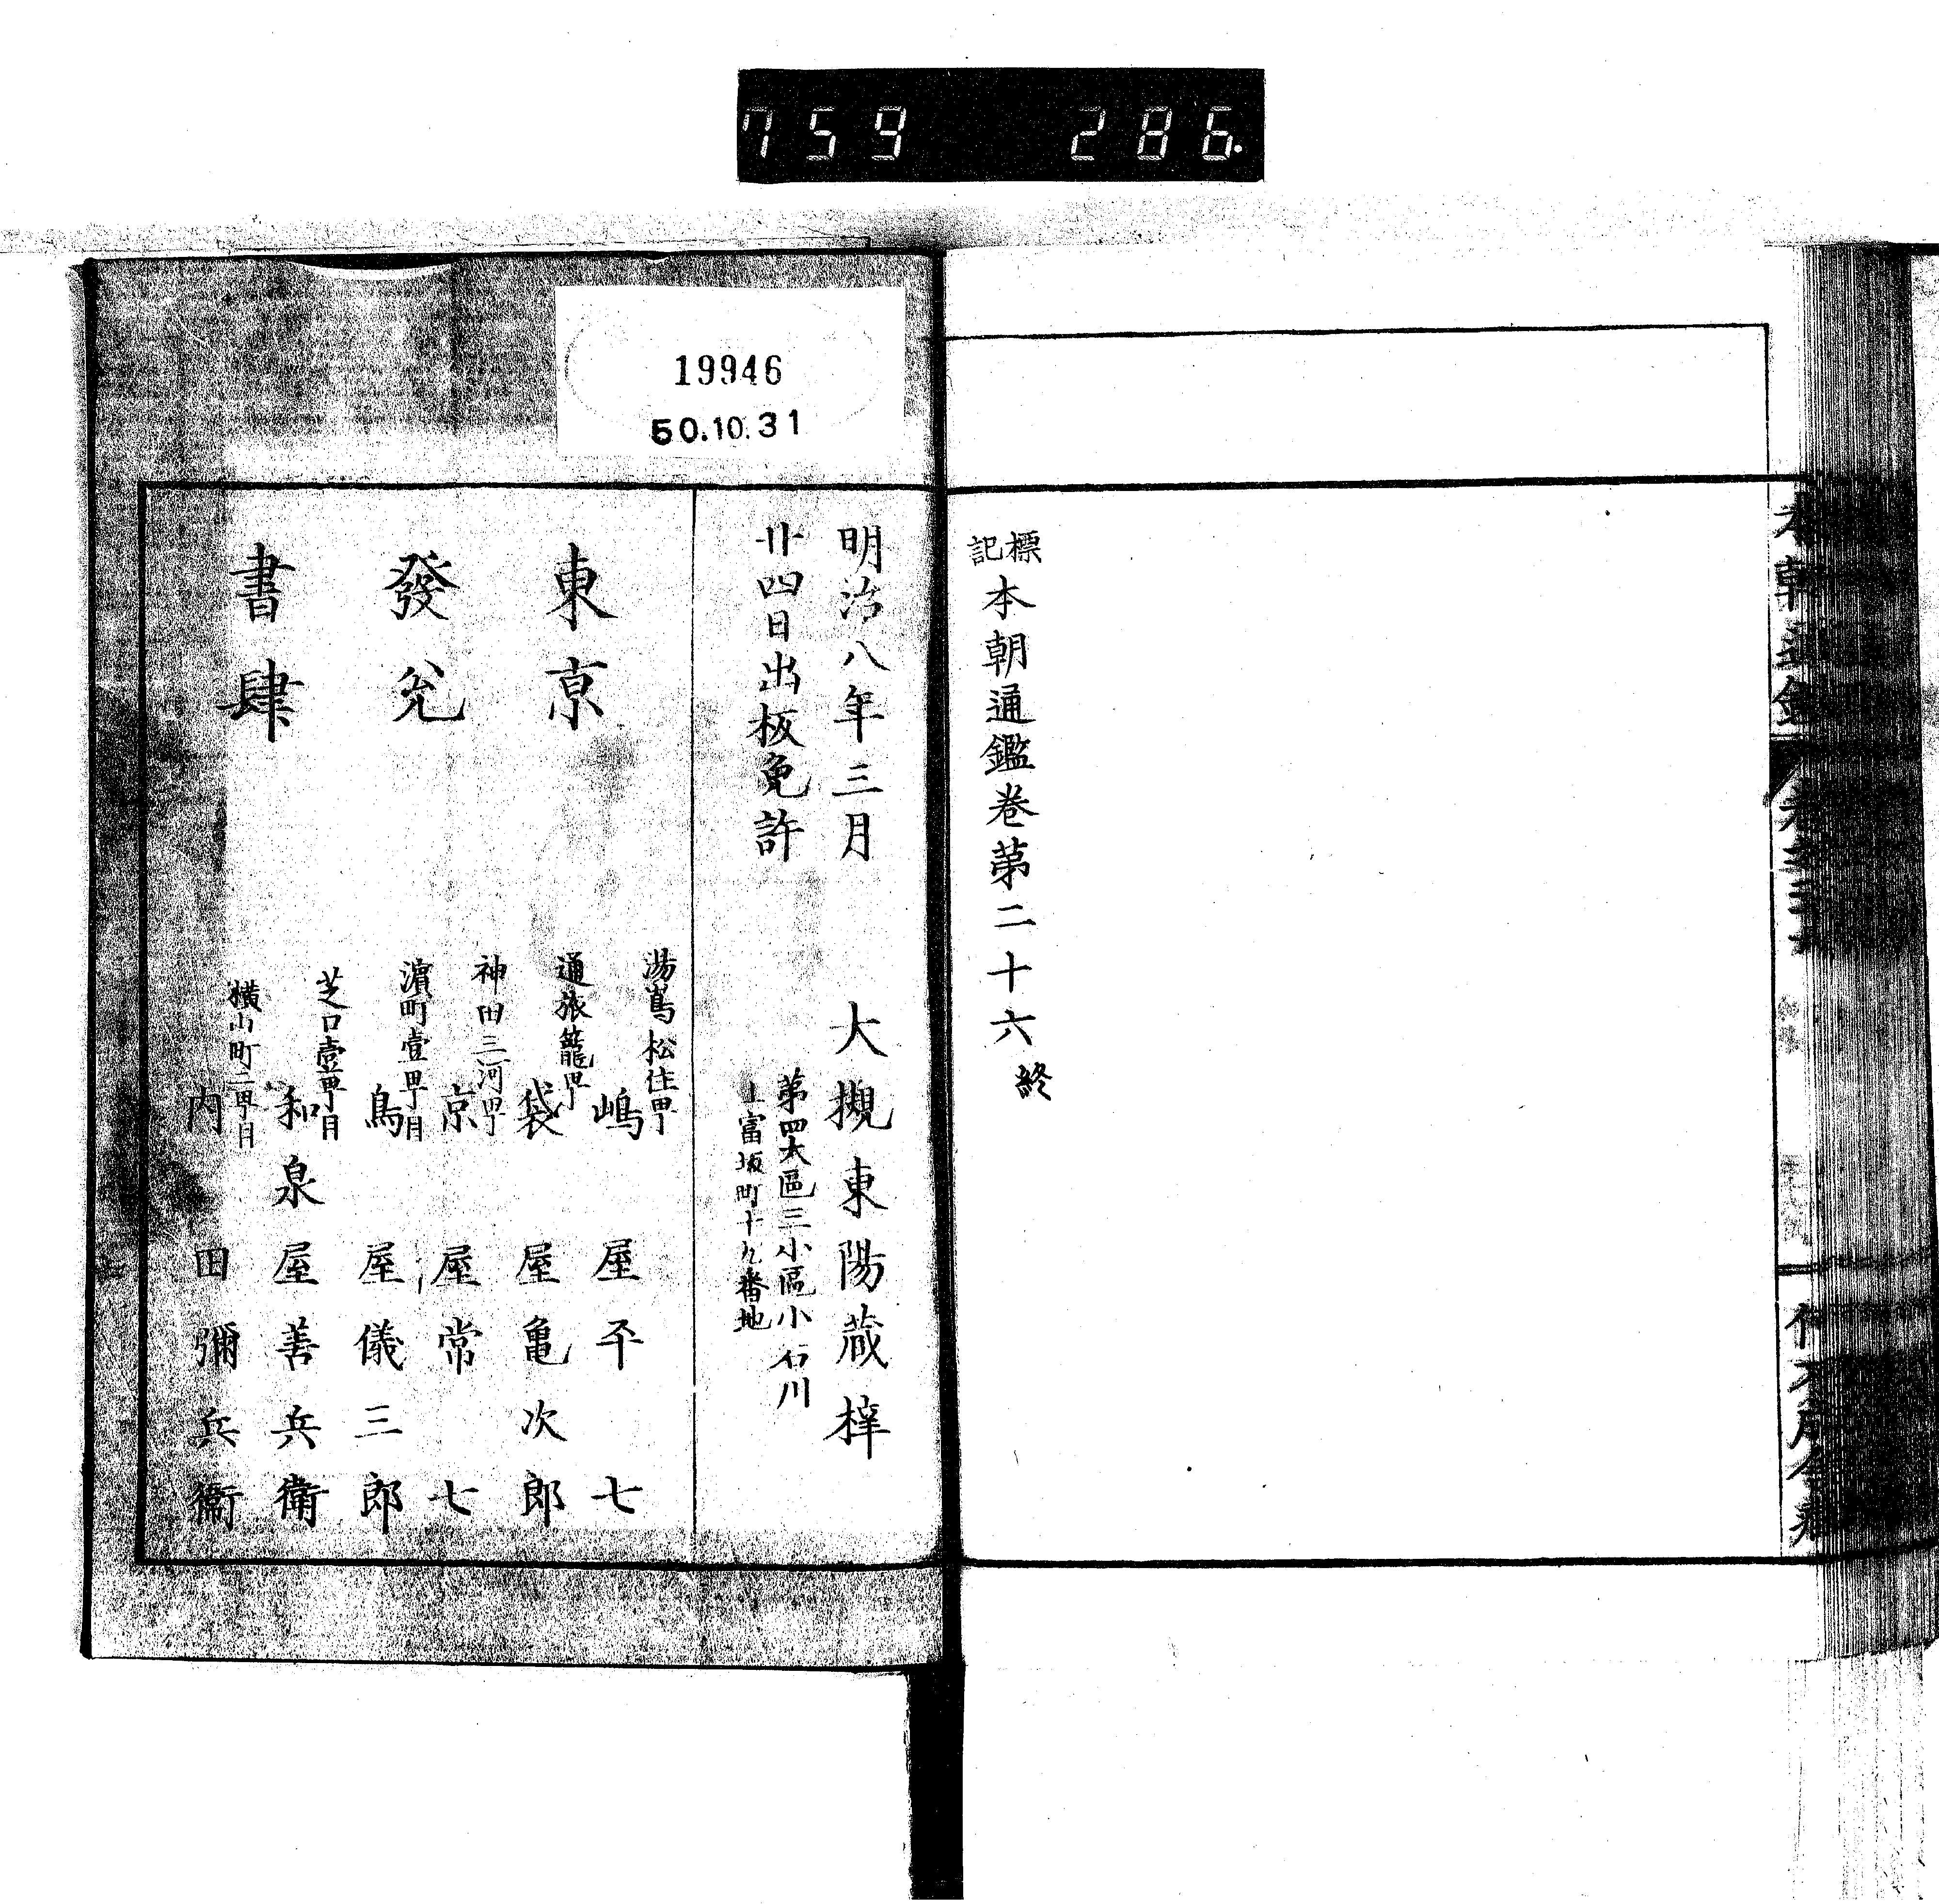 759 286.
19946
50.10.31
標記 本朝通鑑卷第二十六 終
明治八年三月
廿四日出板免許
大槻東陽蔵梓
第四大區三小區小石川
上富坂町十九番地
東京
發兌
書肆
湯嶌松住町
嶋屋平七
通旅籠町
袋屋亀次郎
神田三河町
京屋常七
濱町壹町目
鳥屋儀三郎
芝口壹町目
和泉屋善兵衛
横山町二町目
内田彌兵衞